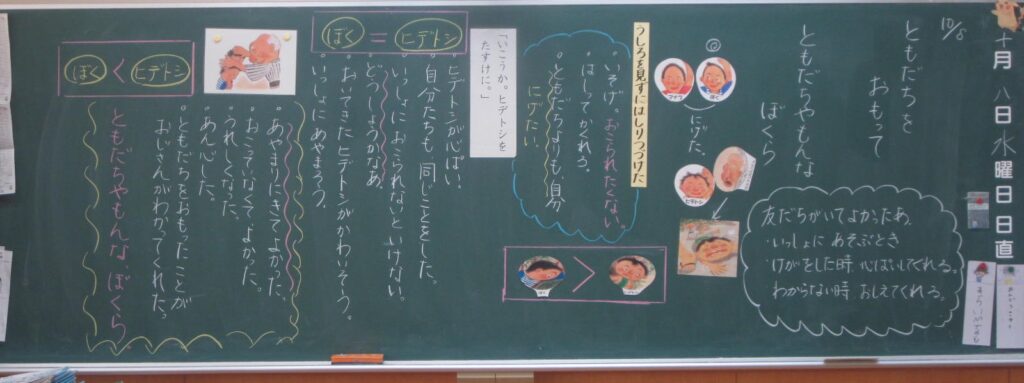 十月八日水曜日日直
10/8
ともだちを
おもって
ともだちやもんな
ぼくら
友だちがいてよかったあ。
・いっしょに あそぶとき
・けがをした時 心ぱいしてくれる。
・わからない時、おしえてくれる。
◎
マナブ
ぼく
にげた。
ヒデトシ
うしろを見ずにはしりつづけた
・いそげ。おこられたくない。
・はしってかくれる。
・ともだちよりも、自分
にげたい。
>
「いこうか。ヒデトシを
たすけに。」
ぼく = ヒデトシ
・ヒデトシが心ぱい。
・自分たちも、同じことをした。
・いっしょに おこられないといけない。
・どうしようかなあ。
・おいてきたヒデトシがかわいそう。
・いっしょにあやまろう。
ぼく < ヒデトシ
・あやまりにきてよかった。
・おこっていなくてよかった。
・うれしくなった。
・あん心した。
・ともだちをおもったことが
おじさんがわかってくれた。
ともだちやもんな ぼくら